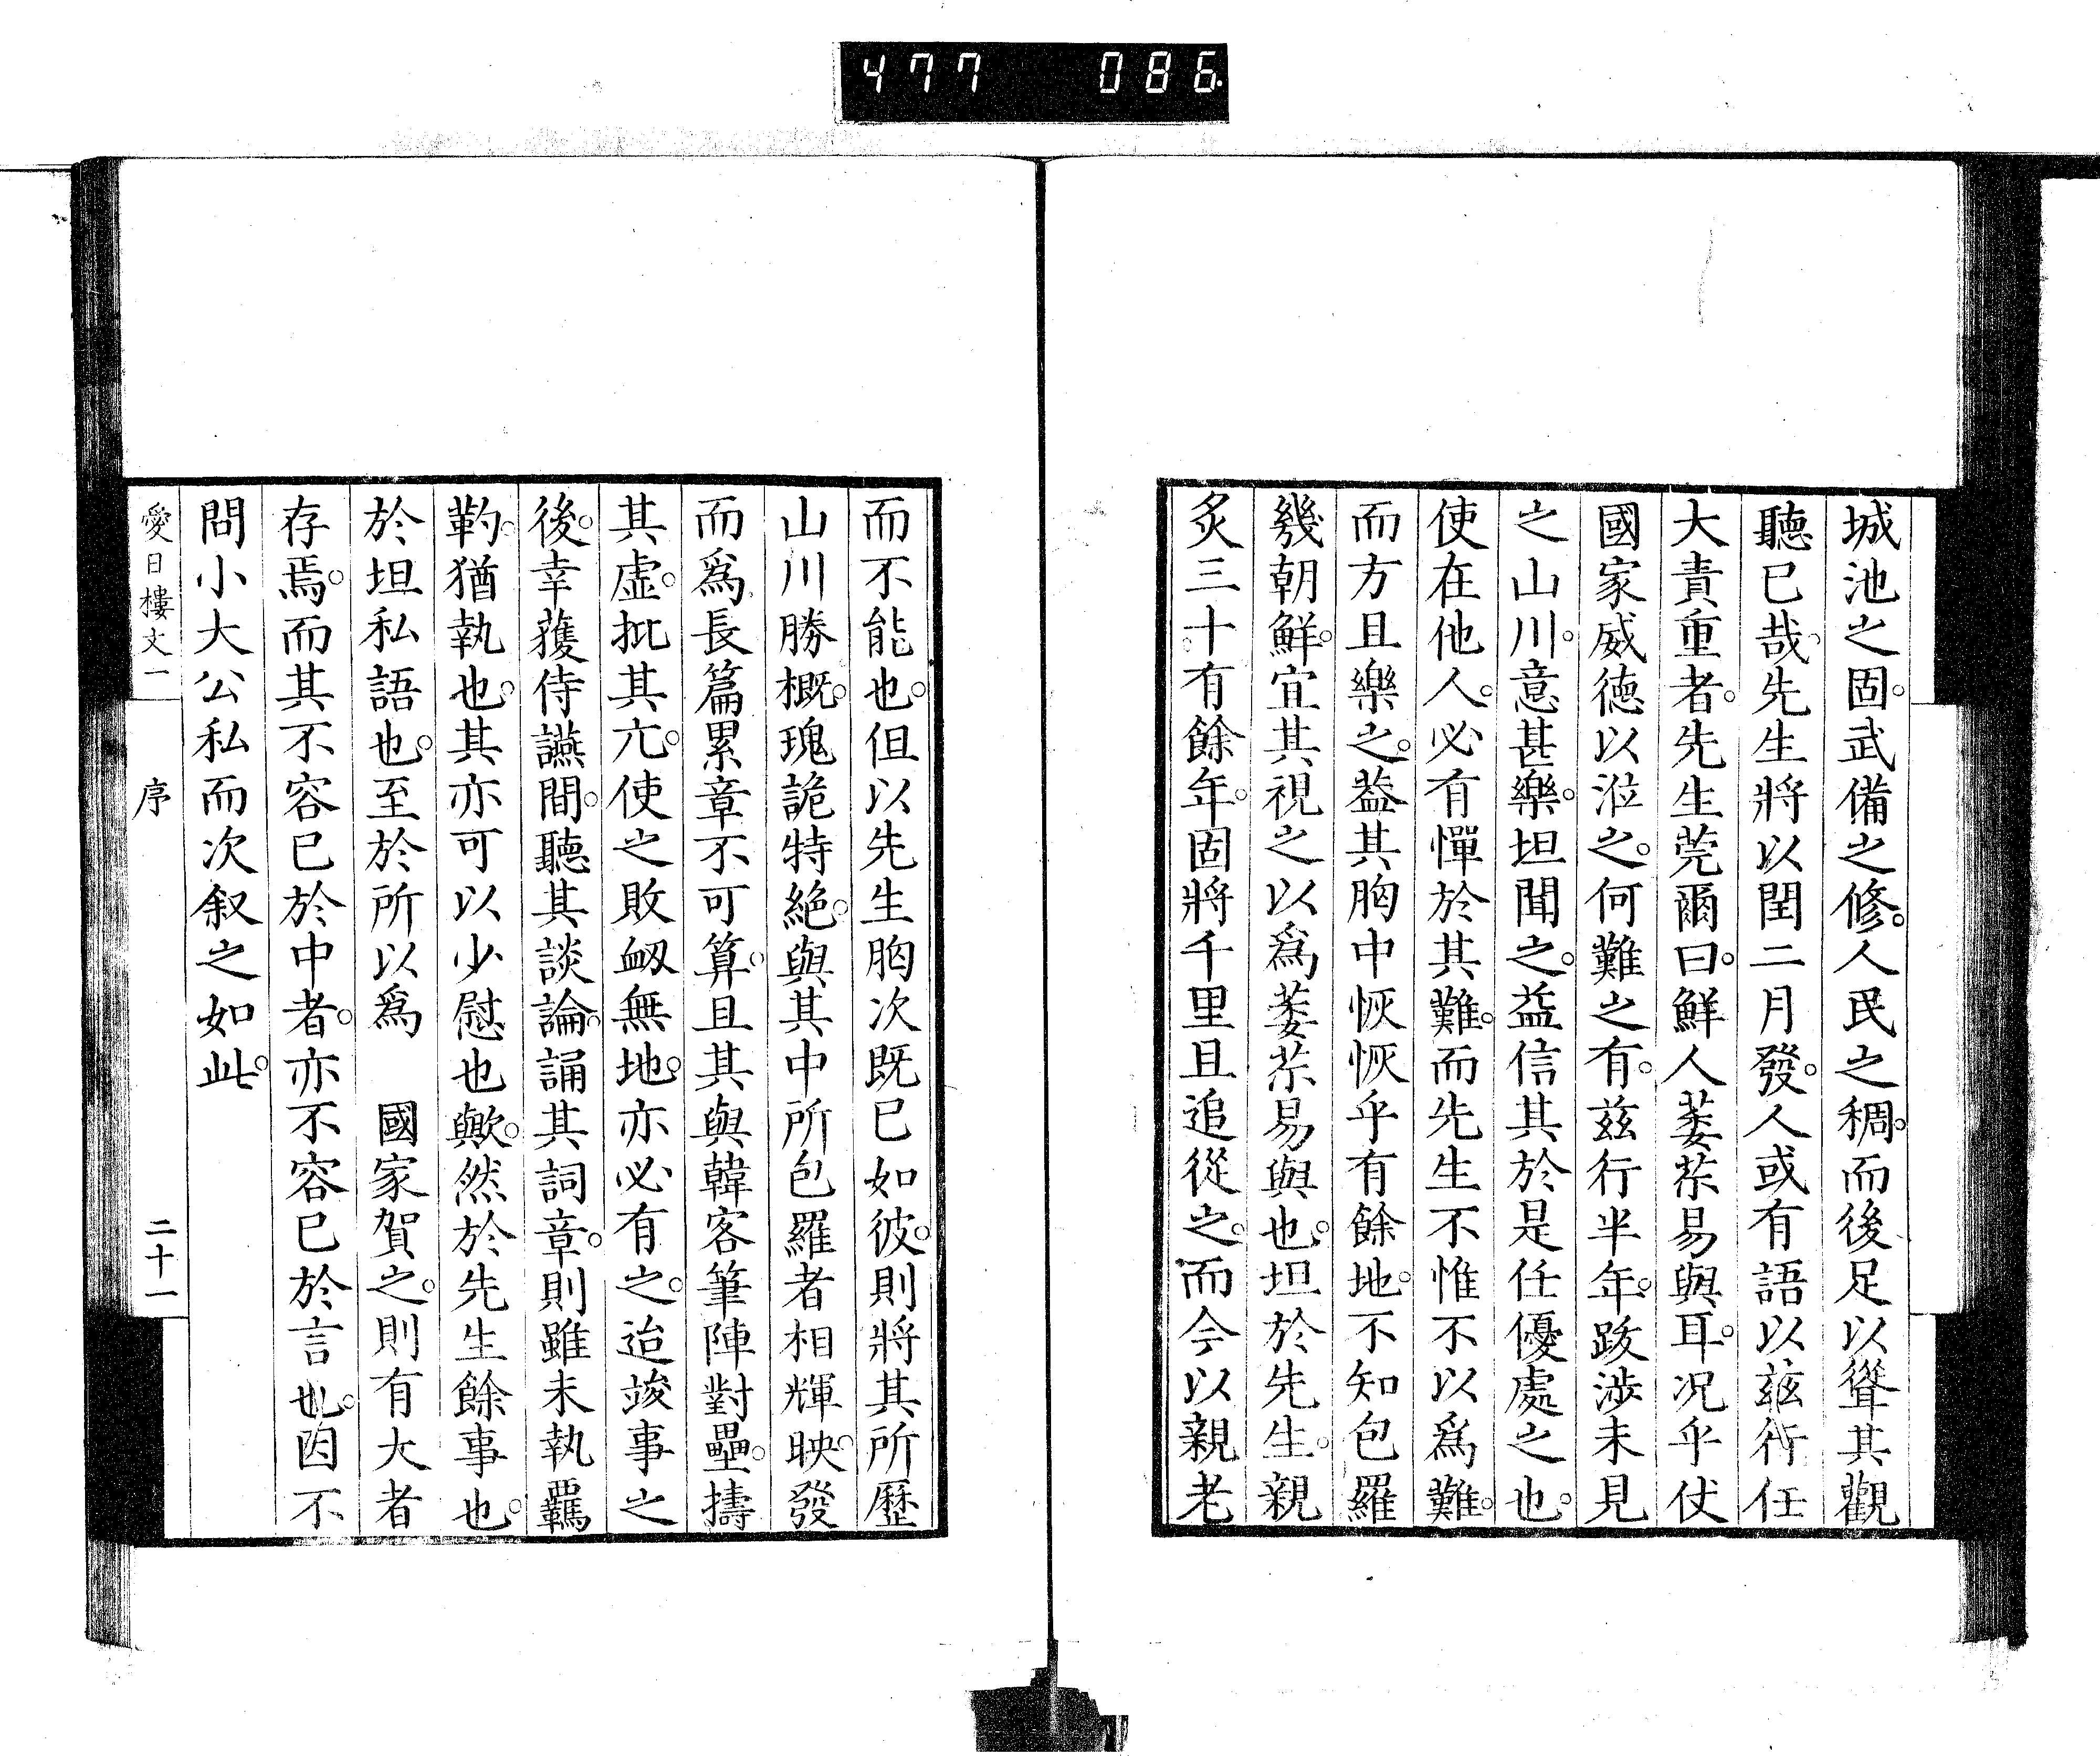 477 086
城池之固。武備之修。人民之稠。而後足以聳其觀
聽已哉。先生將以閏二月發。人或有語以茲行任
大責重者。先生莞爾曰。鮮人萎苶易與耳。況乎仗
國家威德以涖之。何難之有。茲行半年。跋涉未見
之山川。意甚樂。坦聞之。益信其於是任優處之也。
使在他人。必有憚於其難。而先生不惟不以爲難。
而方且樂之。葢其胸中恢恢乎有餘地。不知包羅
幾朝鮮。宜其視之以爲萎苶易與也。坦於先生。親
炙三十有餘年。固將千里且追從之。而今以親老
而不能也。但以先生胸次既已如彼。則將其所歷
山川勝概。瑰詭特絕。與其中所包羅者相輝映。發
而爲長篇累章不可算。且其與韓客筆陣對壘。擣
其虛。批其亢。使之敗衂無地。亦必有之。迨竣事之
後。幸獲侍讌間。聽其談論。誦其詞章。則雖未執羈
靮。猶執也。其亦可以少慰也歟。然於先生餘事也。
於坦私語也。至於所以爲　國家賀之。則有大者
存焉。而其不容已於中者。亦不容已於言也。因不
問小大公私而次叙之如此。
愛日樓文一　序　二十一